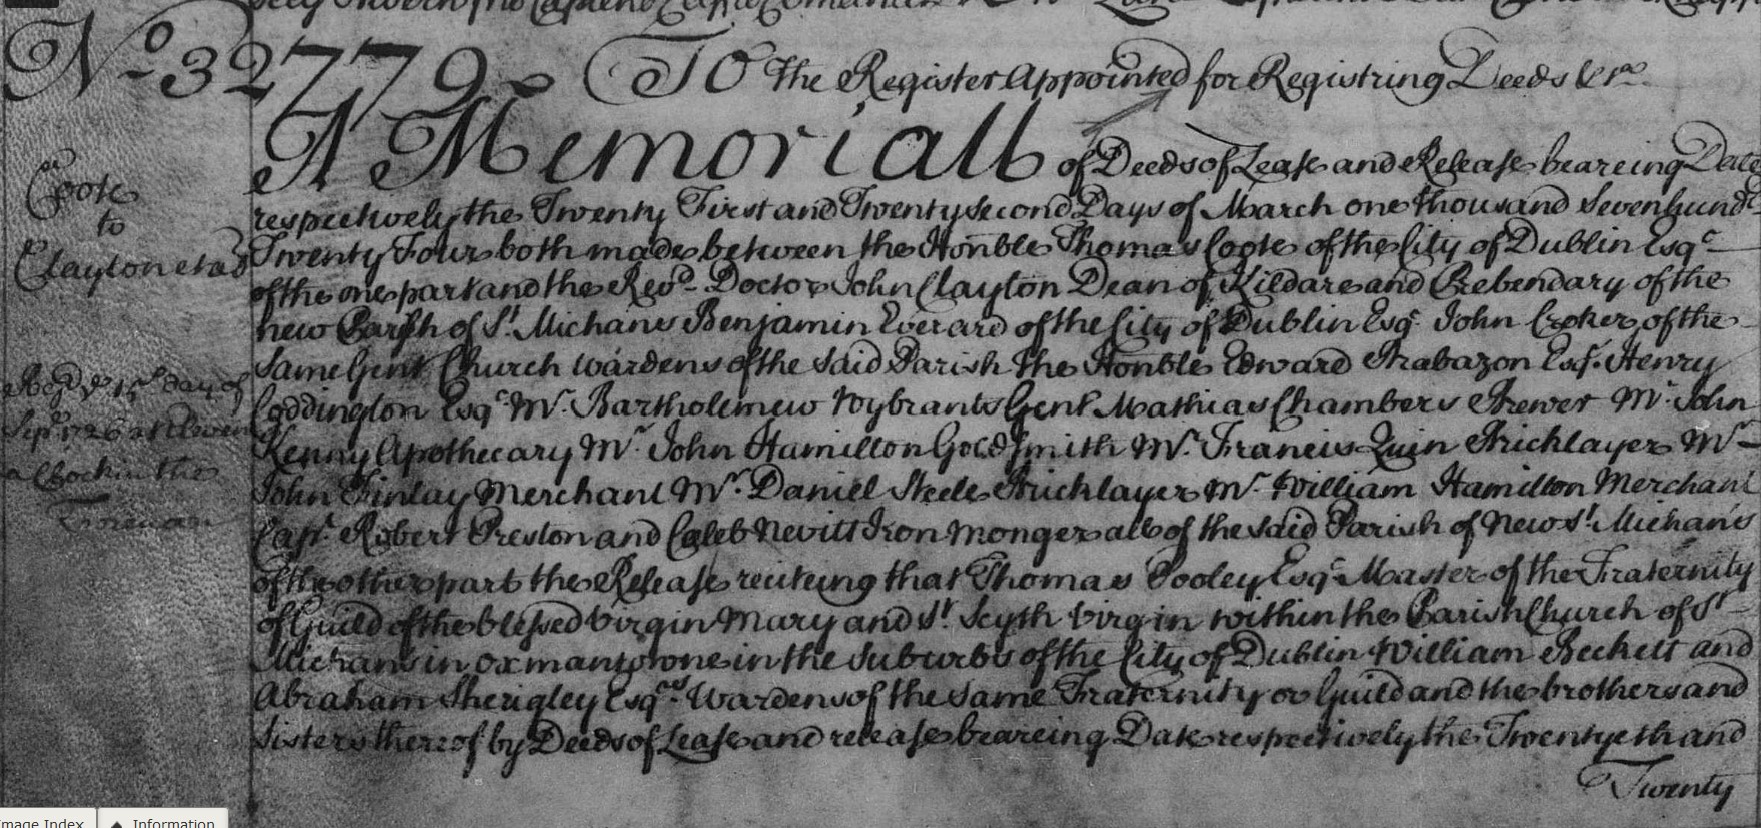 No. 32779
To the Register Appointed for Registring Deeds &ca
A Memoriall of Deeds of Lease and Release beareing Date
Coote
to
Clayton et als
respectively the Twenty First and Twenty Second Days of March one thousand Seven hundd
Twenty Four both made between the Honble Thomas Coote of the City of Dublin Esqr
of the one part and the Revd Doctor John Clayton Dean of Kildare and Prebendary of the
new Parish of St Michans Benjamin Everard of the City of Dublin Esqr John Croker of the
same Gent Church wardens of the said Parish the Honble Edward Brabazon Esqr Henry
Coddington Esqr Mr Bartholemew Wybrants Gent Mathias Chambers Brewer Mr John
Kenny Apothecary Mr John Hamilton Goldsmith Mr Francis Quin Bricklayer Mr
John Finlay Merchant Mr Daniel Steele Bricklayer Mr William Hamilton Merchant
Capt Robert Preston and Caleb Nevitt Iron monger all of the said Parish of New St Michans
of the other part the Release reciteing that Thomas Pooley Esqr Master of the Fraternity
of Guild of the blessed Virgin Mary and St Scyth Virgin within the Parish Church of St
Michans in oxmantowne in the Suburbs of the City of Dublin William Beckett and
Abraham Sherigley Esqrs Wardens of the same Fraternity or Guild and the brothers and
Sisters thereof by Deeds of Lease and release beareing Date respectively the Twentyeth and
Twenty
Regd ye 15th day of
Sepr 1726 at Eleven
a Clock in the
Forenoon
Image Index
Information